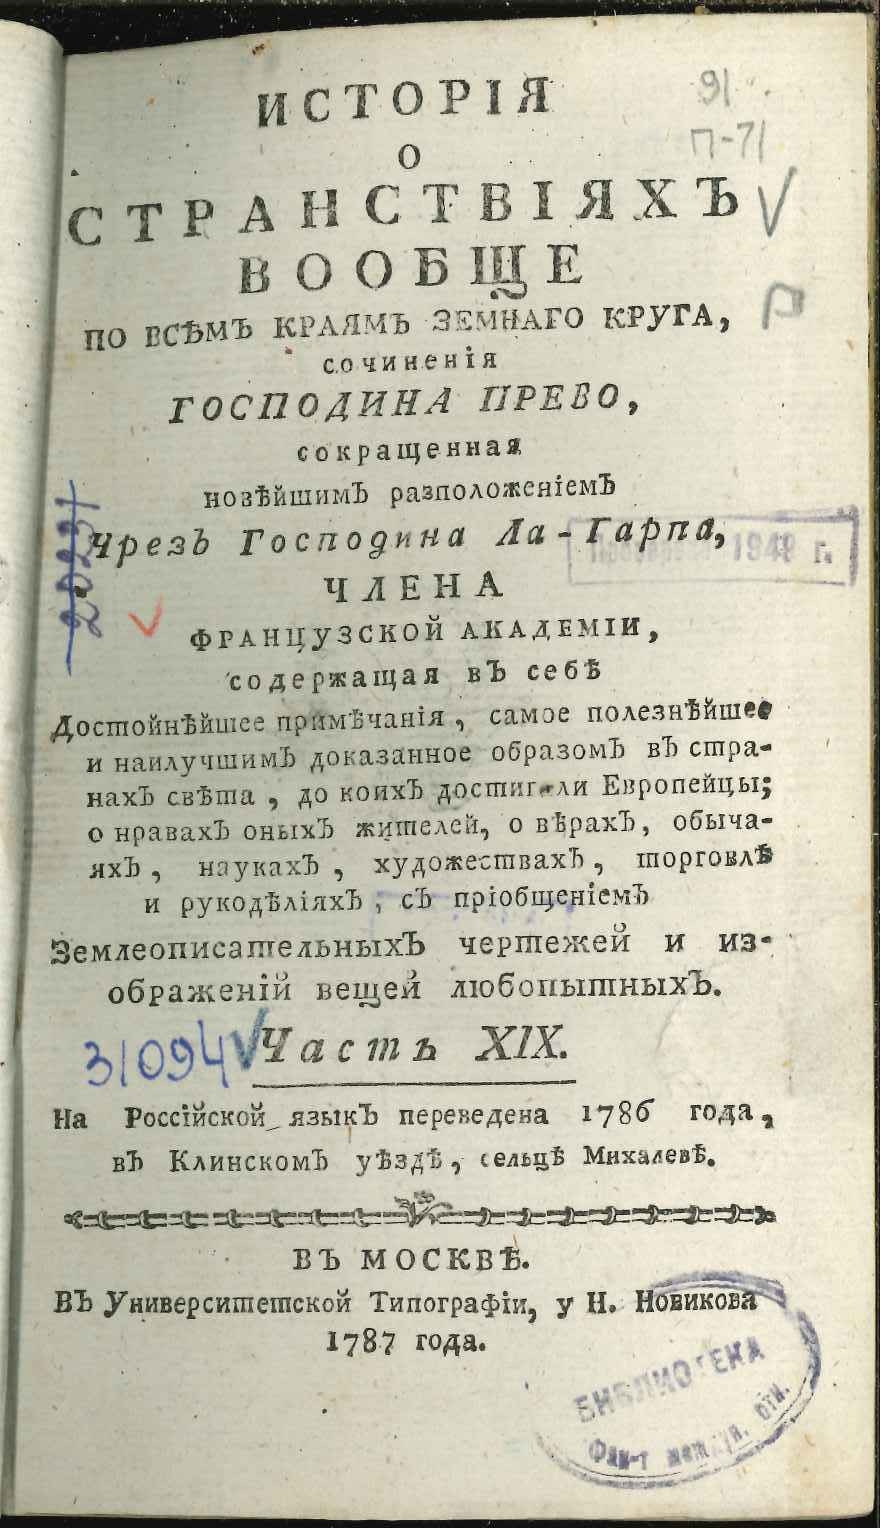 ИСТОРІЯ
О
СТРАНСТВІЯХЪ
ВООБЩЕ
ПО ВСѢМЪ КРАЯМЪ ЗЕМНАГО КРУГА,
сочиненія
ГОСПОДИНА ПРЕВО,
сокращенная
новѣйшимЪ разположеніемЪ
ЧрезЪ Господина Ла-Гарпа,
ЧЛЕНА
ФРАНЦУЗСКОЙ АКАДЕМІИ,
содержащая вЪ себѣ
Достойнѣйшее примѣчанія, самое полезнѣйшее
и наилучшимЪ доказанное образомЪ вЪ стра-
нахЪ свѣта, до коихЪ достигали Европейцы;
о нравахЪ оныхЪ жителей, о вѣрахЪ, обыча-
яхЪ, наукахЪ, художествахЪ, торговлѣ
и рукодѣліяхЪ, сЪ пріобщеніемЪ
ЗемлеописательныхЪ чертежей и из-
ображеній вещей любопытныхЪ.
Часть XIX.
На Россійской языкЪ переведена 1786 года,
вЪ КлинскомЪ уѣздѣ, сельцѣ Михалевѣ.
ВЪ МОСКВѢ.
ВЪ Университетской Типографіи, у Н. Новикова
1787 года.
91
П-71
Р
1949 г.
31094
БИБЛИОТЕКА